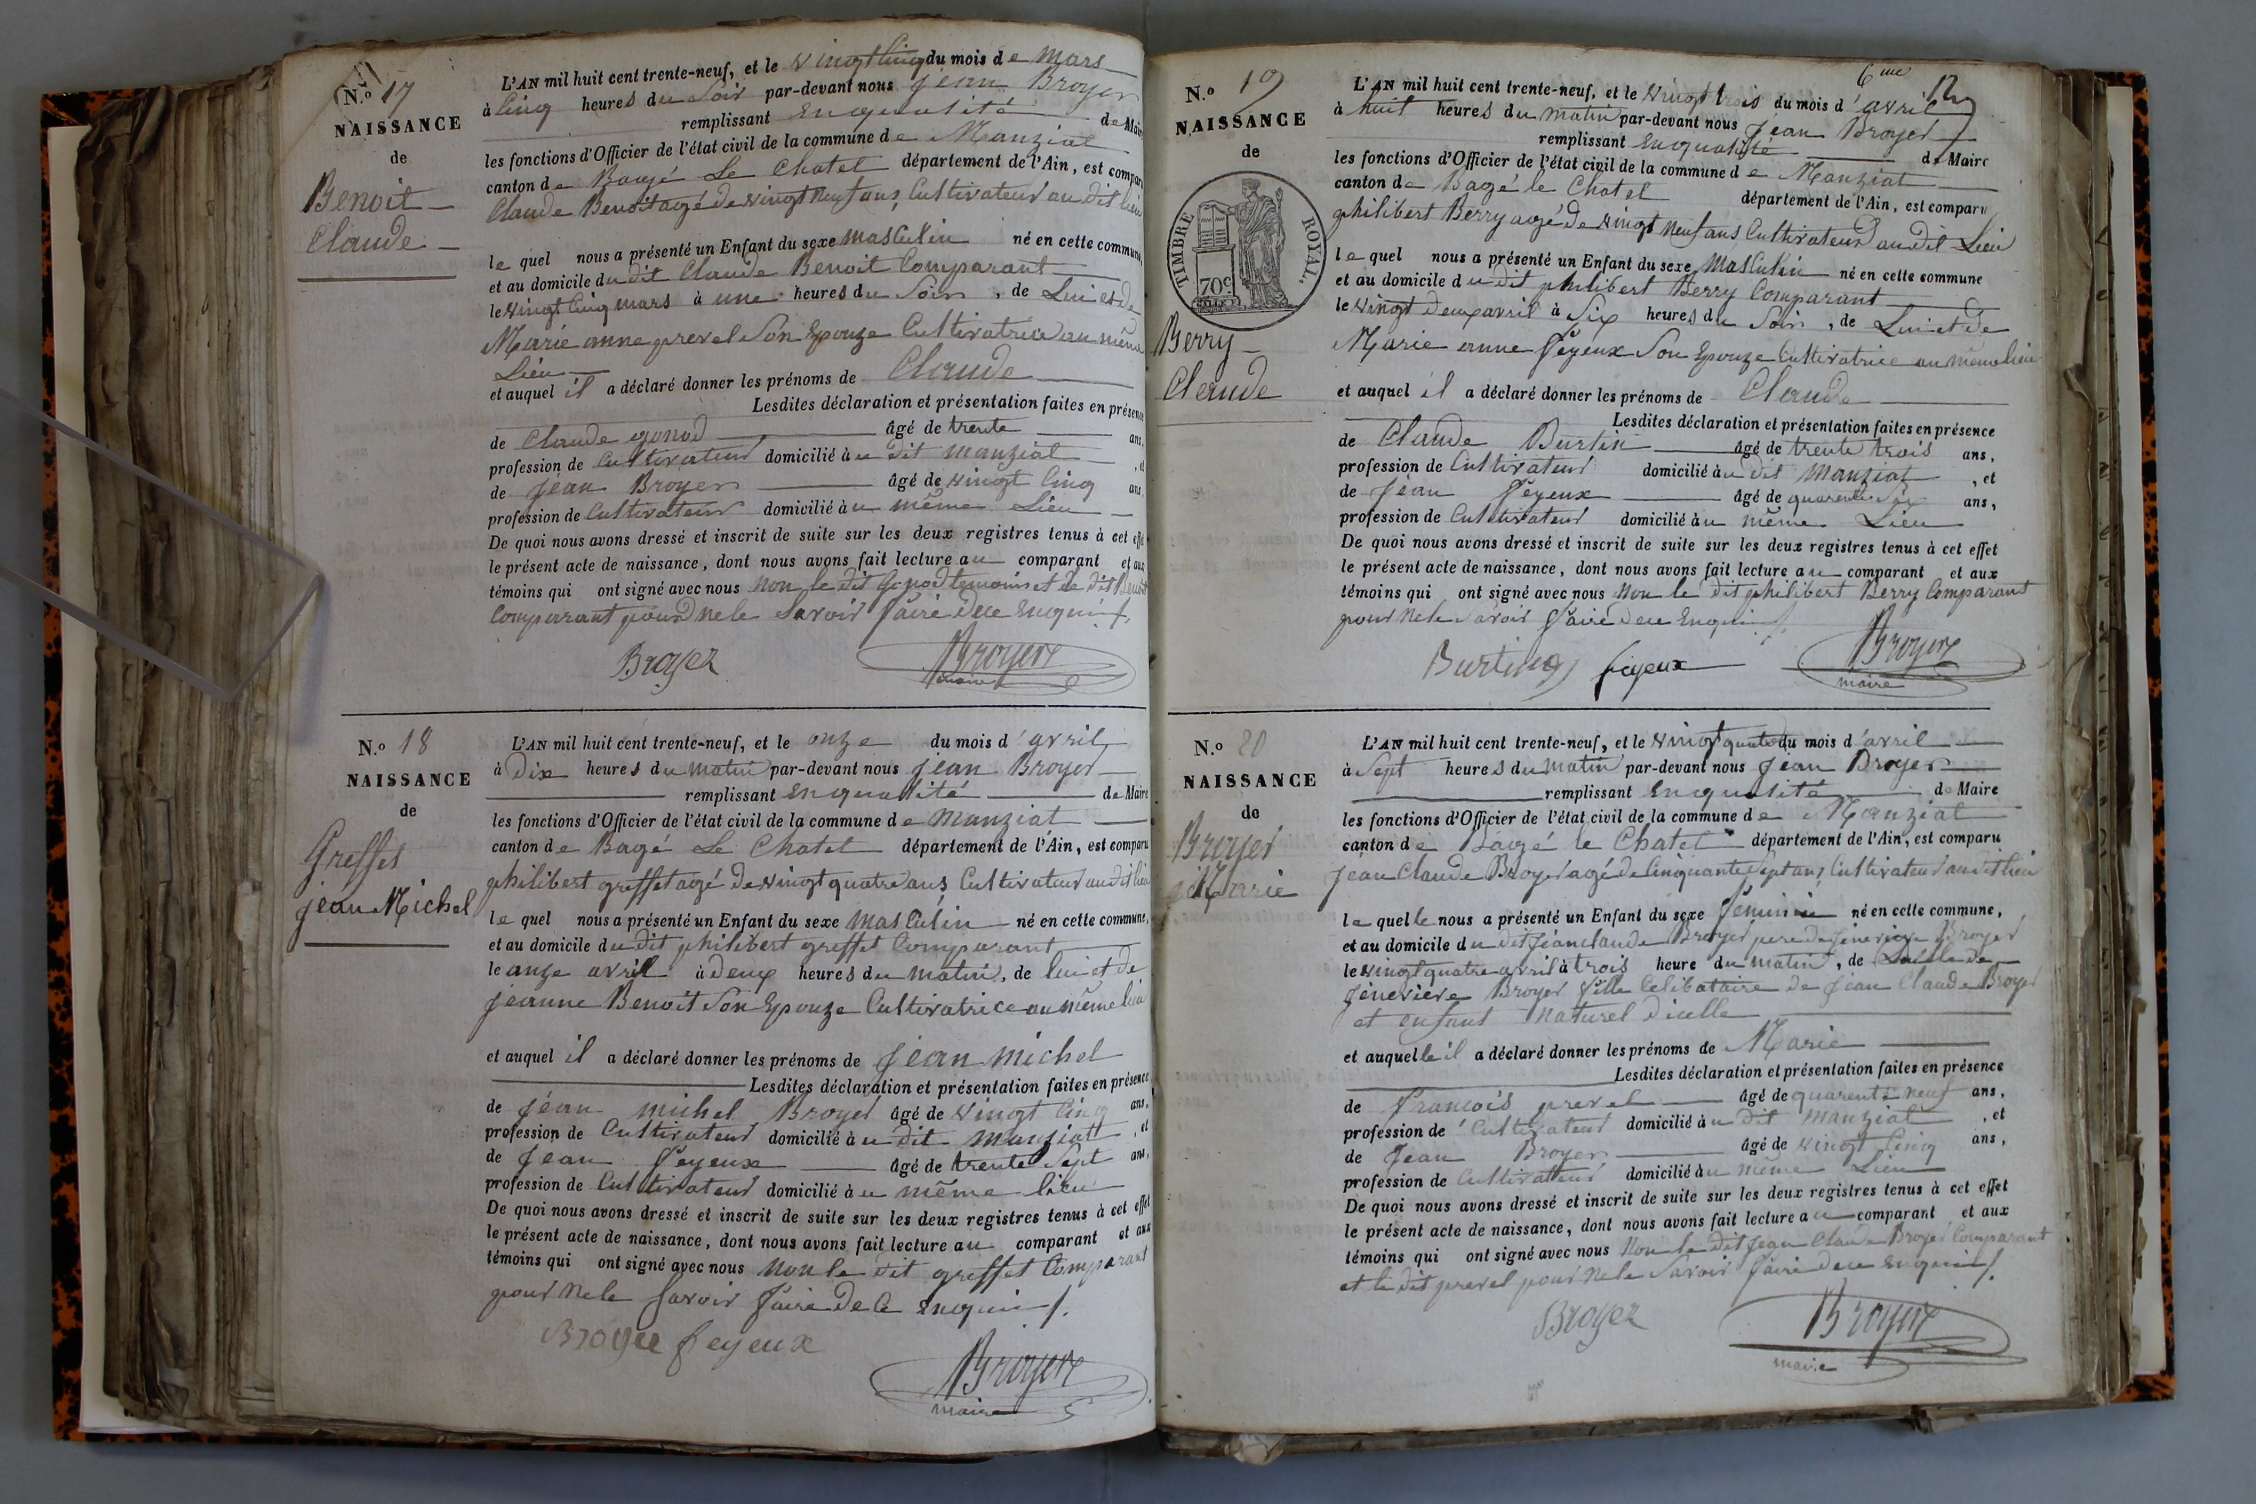 N.º 17
NAISSANCE
de
Benoit
Claude
L'AN mil huit cent trente-neuf, et le vingt cinq du mois de Mars
à cinq heures du Soir par-devant nous jean Broyer
remplissant enqualité de Maire
les fonctions d'Officier de l'état civil de la commune de Manziat
canton de Baugé Le Chatel département de l'Ain, est comparu
Claude Benoit agé de vingt neuf ans, Cultivateur au dit lieu
le quel nous a présenté un Enfant du sexe masculin né en cette commune,
et au domicile du dit Claude Benoit Comparant
le vingt cinq mars à une heures du Soir, de Lui et de
Marie anne prevel Son Epouze Cultivatrice au même
Lieu
et auquel il a déclaré donner les prénoms de Claude
Lesdites déclaration et présentation faites en présence
de Claude gonod âgé de trente ans,
profession de Cultivateur domicilié au dit manziat, et
de jean Broyer âgé de vingt cinq ans,
profession de Cultivateur domicilié au même Lieu
De quoi nous avons dressé et inscrit de suite sur les deux registres tenus à cet effet
le présent acte de naissance, dont nous avons fait lecture au comparant et aux
témoins qui ont signé avec nous non le dit Gonod temoin et le dit Benoit
Comparant pour ne le Savoir faire de ce enquis
Broyer Broyer
maire
N.º 18
NAISSANCE
de
Greffet
jean Michel
L'AN mil huit cent trente-neuf, et le onze du mois d'avril
à Dix heures du matin par-devant nous jean Broyer
remplissant enqualité de Maire
les fonctions d'Officier de l'état civil de la commune de manziat
canton de Bagé Le Chatel département de l'Ain, est comparu
philibert greffet agé de vingt quatre ans Cultivateur au dit lieu
le quel nous a présenté un Enfant du sexe masculin né en cette commune,
et au domicile du dit philibert greffet Comparant
le onze avril à deux heures du matin, de lui et de
jeanne Benoit Son Epouze Cultivatrice au même lieu
et auquel il a déclaré donner les prénoms de jean michel
Lesdites déclaration et présentation faites en présence
de jean michel Broyer âgé de vingt cinq ans,
profession de Cultivateur domicilié au dit manziat, et
de jean feyeux âgé de trente Sept ans,
profession de Cultivateur domicilié au même lieu
De quoi nous avons dressé et inscrit de suite sur les deux registres tenus à cet effet
le présent acte de naissance, dont nous avons fait lecture au comparant et aux
témoins qui ont signé avec nous non le dit greffet Comparant
pour ne le Savoir faire de ce enquis
Broyer feyeux
Broyer
maire
6me
N.º 19
NAISSANCE
de
TIMBRE ROYAL.
70c
Berry
Claude
L'AN mil huit cent trente-neuf, et le vingt trois du mois d'avril
à huit heures du matin par-devant nous jean Broyer
remplissant enqualité de Maire
les fonctions d'Officier de l'état civil de la commune de Manziat
canton de Bagé le Chatel département de l'Ain, est comparu
philibert Berry agé de vingt neuf ans Cultivateur au dit Lieu
le quel nous a présenté un Enfant du sexe masculin né en cette commune
et au domicile du dit philibert Berry Comparant
le vingt deux avril à Six heures du Soir, de Lui et de
Marie anne feyeux Son Epouze Cultivatrice au même lieu
et auquel il a déclaré donner les prénoms de Claude
Lesdites déclaration et présentation faites en présence
de Claude Burtin âgé de trente trois ans,
profession de Cultivateur domicilié au dit manziat, et
de jean feyeux âgé de quarente Six ans,
profession de Cultivateur domicilié au même Lieu
De quoi nous avons dressé et inscrit de suite sur les deux registres tenus à cet effet
le présent acte de naissance, dont nous avons fait lecture au comparant et aux
témoins qui ont signé avec nous non le dit philibert Berry Comparant
pour ne le Savoir faire de ce enquis
Burtin feyeux Broyer
maire
N.º 20
NAISSANCE
de
Broyer
Marie
L'AN mil huit cent trente-neuf, et le vingt quatre du mois d'avril
à Sept heures du matin par-devant nous jean Broyer
remplissant enqualité de Maire
les fonctions d'Officier de l'état civil de la commune de Manziat
canton de Bagé le Chatel département de l'Ain, est comparu
jean Claude Broyer agé de Cinquante Sept ans Cultivateur au dit lieu
le quelle nous a présenté un Enfant du sexe feminin né en cette commune,
et au domicile du dit jean claude Broyer pere de jenevieve Broyer
le vingt quatre avril à trois heure du matin, de
jenevieve Broyer fille Celibataire de jean Claude Broyer
et enfant naturel dicelle
et auquelle il a déclaré donner les prénoms de Marie
Lesdites déclaration et présentation faites en présence
de francois prevel âgé de quarente neuf ans,
profession de Cultivateur domicilié au dit manziat, et
de jean Broyer âgé de vingt cinq ans,
profession de Cultivateur domicilié au même Lieu
De quoi nous avons dressé et inscrit de suite sur les deux registres tenus à cet effet
le présent acte de naissance, dont nous avons fait lecture au comparant et aux
témoins qui ont signé avec nous non le dit jean Claude Broyer Comparant
et le dit prevel pour ne le Savoir faire de ce enquis
Broyer Broyer
maire